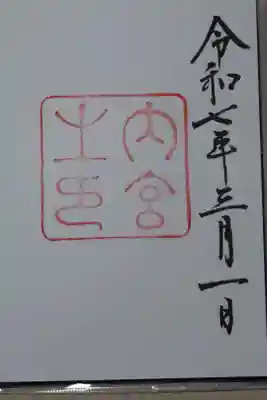 令和七年三月一日
内宮
之印